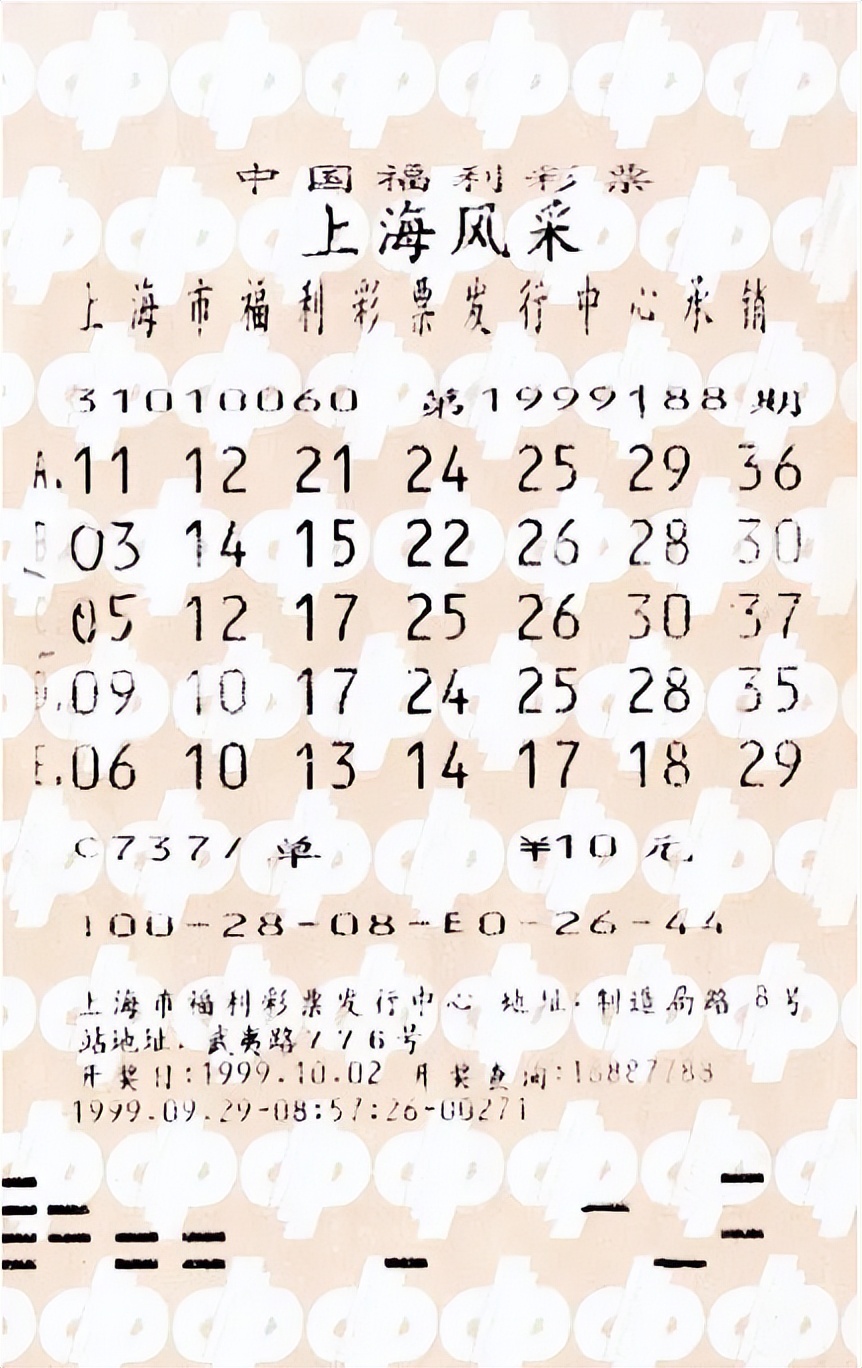 中国福利彩票
上海风采
上海市福利彩票发行中心承销
31010060 第1999188期
A.11 12 21 24 25 29 36
B.03 14 15 22 26 28 30
C.05 12 17 25 26 30 37
D.09 10 17 24 25 28 35
E.06 10 13 14 17 18 29
C7377 单 ¥10元
100-28-08-E0-26-44
上海市福利彩票发行中心 地址:制造局路 8号
站地址:武夷路776号
开奖日:1999.10.02 开奖查询:16887788
1999.09.29-08:57:26-00271